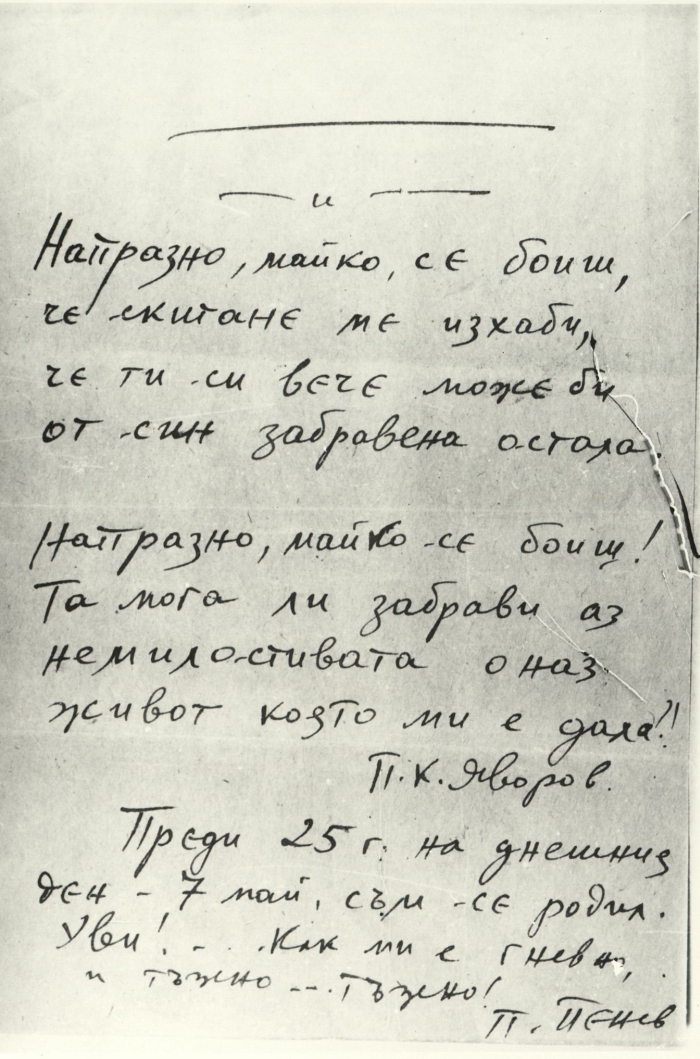 и
Напразно, майко, се боиш,
че скитане ме изхаби,
че ти си вече може би
от син забравена остала.
Напразно, майко се боиш!
Та мога ли забрави аз
немилостивата оназ
живот която ми е дала?!
П. К. Яворов.
Преди 25 г. на днешния
ден - 7 май, съм се родил.
Уви! ... Как ми е гневно,
и тъжно ... тъжно!
П. Пенев